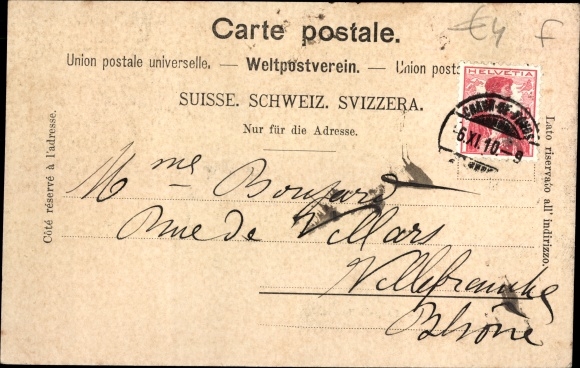 €4 F
Carte postale.
Union postale universelle. — Weltpostverein. — Union posta
SUISSE. SCHWEIZ. SVIZZERA.
Nur für die Adresse.
Côté réservé à l'adresse.
Lato riservato all' indirizzo.
HELVETIA
CHAUX-DE-FONDS
6.XI.10.-9
Mme Boujard
Rue de Villars
Villefranche
Rhône